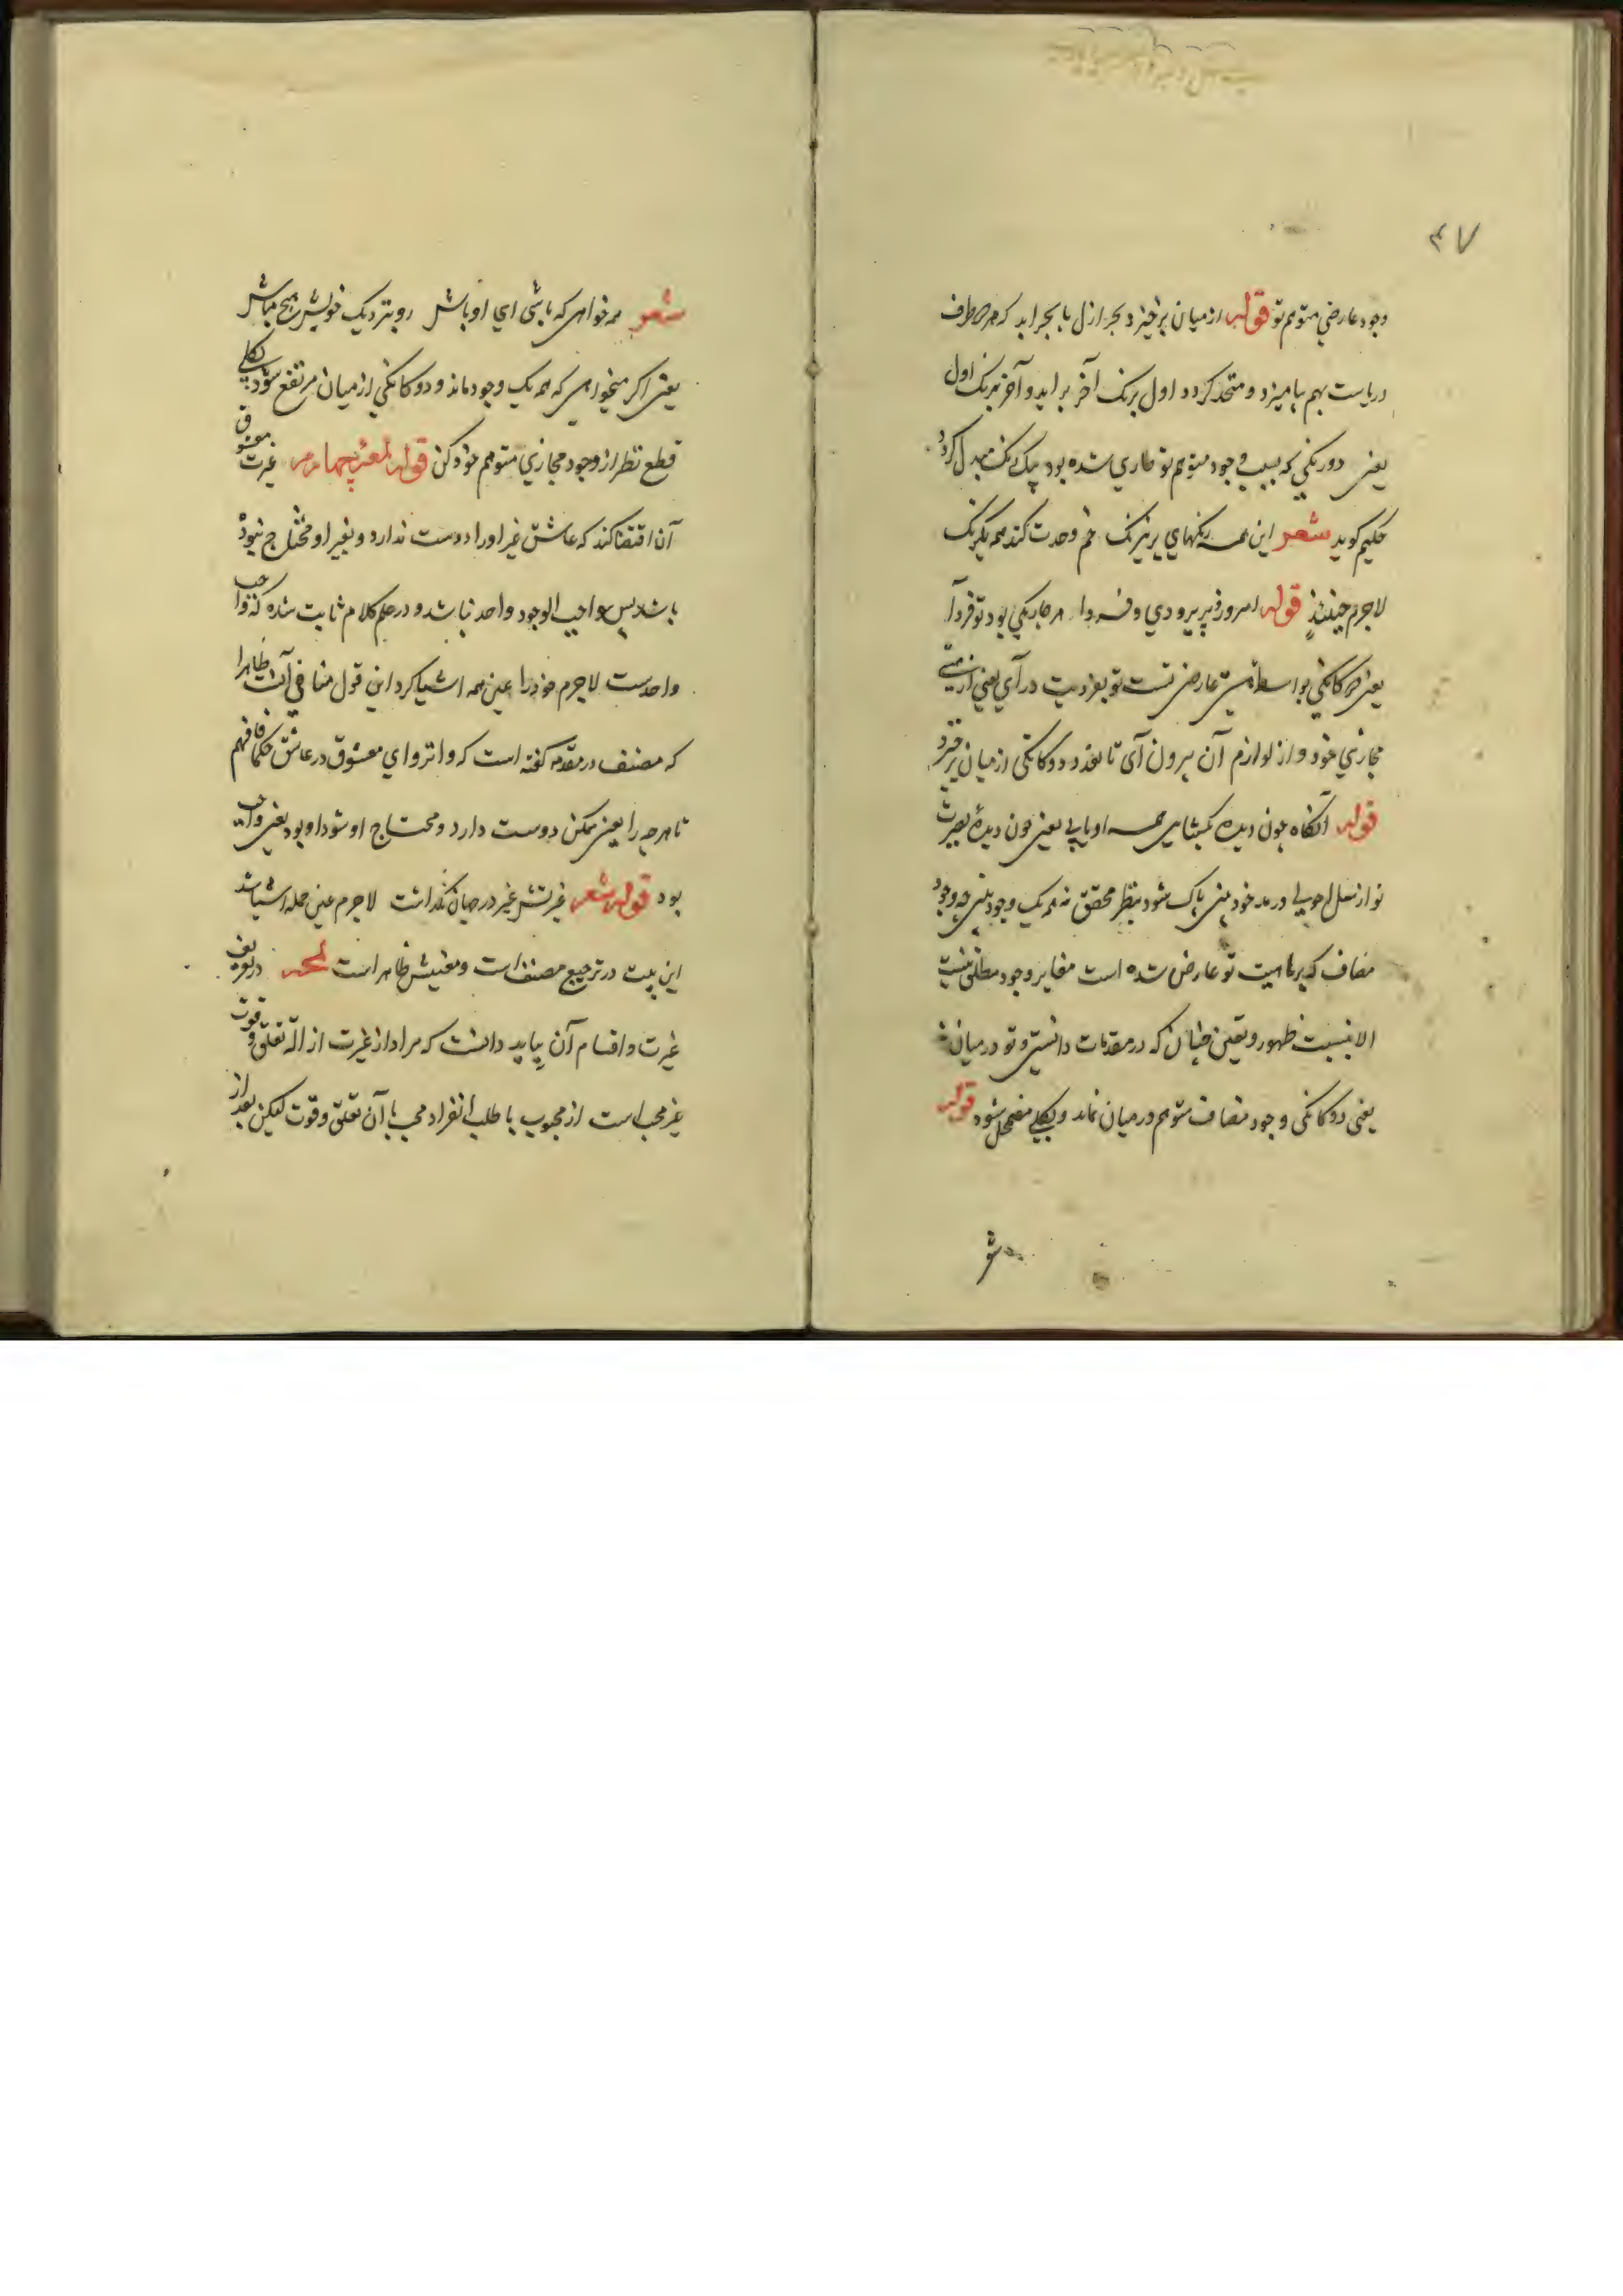 ۴۷
وجود عارضی متوهم تو قوله از میان برخیزد بحر ازل با بحر ابد که هر دو طرف
دریاست بهم بیامیزد و متحد گردد اول برنک آخر برآید و آخر برنک اول
یعنی دورنکی که بسبب وجود متوهم تو طاری شده بود بیک رنک مبدل کردد
حکیم کوید شعر این همه رنکهای پر نیرنک خم وحدت کند همه یکرنک
لاجرم حینئذ قوله امروز و پریر و دی و فردا هر چار یکی بود تو فردا
یعنی دوکانکی بواسطه هستی عارضی تست تو بفردیت در آی یعنی از هستی
مجازی خود و از لوازم آن بیرون آی تا تعدد و دوکانکی از میان برخیزد
قوله آنکاه چون دیده بکشایی همه او یابی یعنی چون دیدهٔ بصیرت
تو از سبل دویی و رمد خودبینی پاک شود بنظر محقق همه یک وجود بینی چه وجود
مضاف که بر ماهیت تو عارض شده است مغایر وجود مطلق نیست
الا بنسبت ظهور و تعین چنان که در مقدمات دانستی و تو در میان نه
یعنی دوکانکی وجود مضاف متوهم در میان نماند و بکلی مضمحل شود قوله
شعر همه خواهی که باشی ای اوباش رو بنزدیک خویش هیچ مباش
یعنی اکر میخواهی که همه یک وجود ماند و دوکانکی از میان مرتفع شود بکلی
قطع نظر از وجود مجازی متوهم خود کن قوله لمعه چهارم غیرت معشوق
آن اقتضا کند که عاشق غیر او را دوست ندارد و بغیر او محتاج نبود
باشد پس واجب الوجود واحد نباشد و در علم کلام ثابت شده که واجب
واحدست لاجرم خود را عین همه اشیا کرد این قول منافی آنست ظاهرا
که مصنف در مقدمه کفته است که و اثر وای معشوق در عاشق حکما فافهم
تا هرچه را یعنی ممکن دوست دارد و محتاج او شود او بود یعنی واجب
بود قوله شعر غیرتش غیر در جهان نکذاشت لاجرم عین جمله اشیا شد
این بیت در ترجیع مصنف است و معنیش ظاهر است لمحه در تعریف
غیرت و اقسام آن بباید دانست که مراد از غیرت ازالهٔ تعلق و قوت
غیر محب است از محبوب با طلب انفراد محب با آن تعلق و قوت لیکن بعد از
شعر